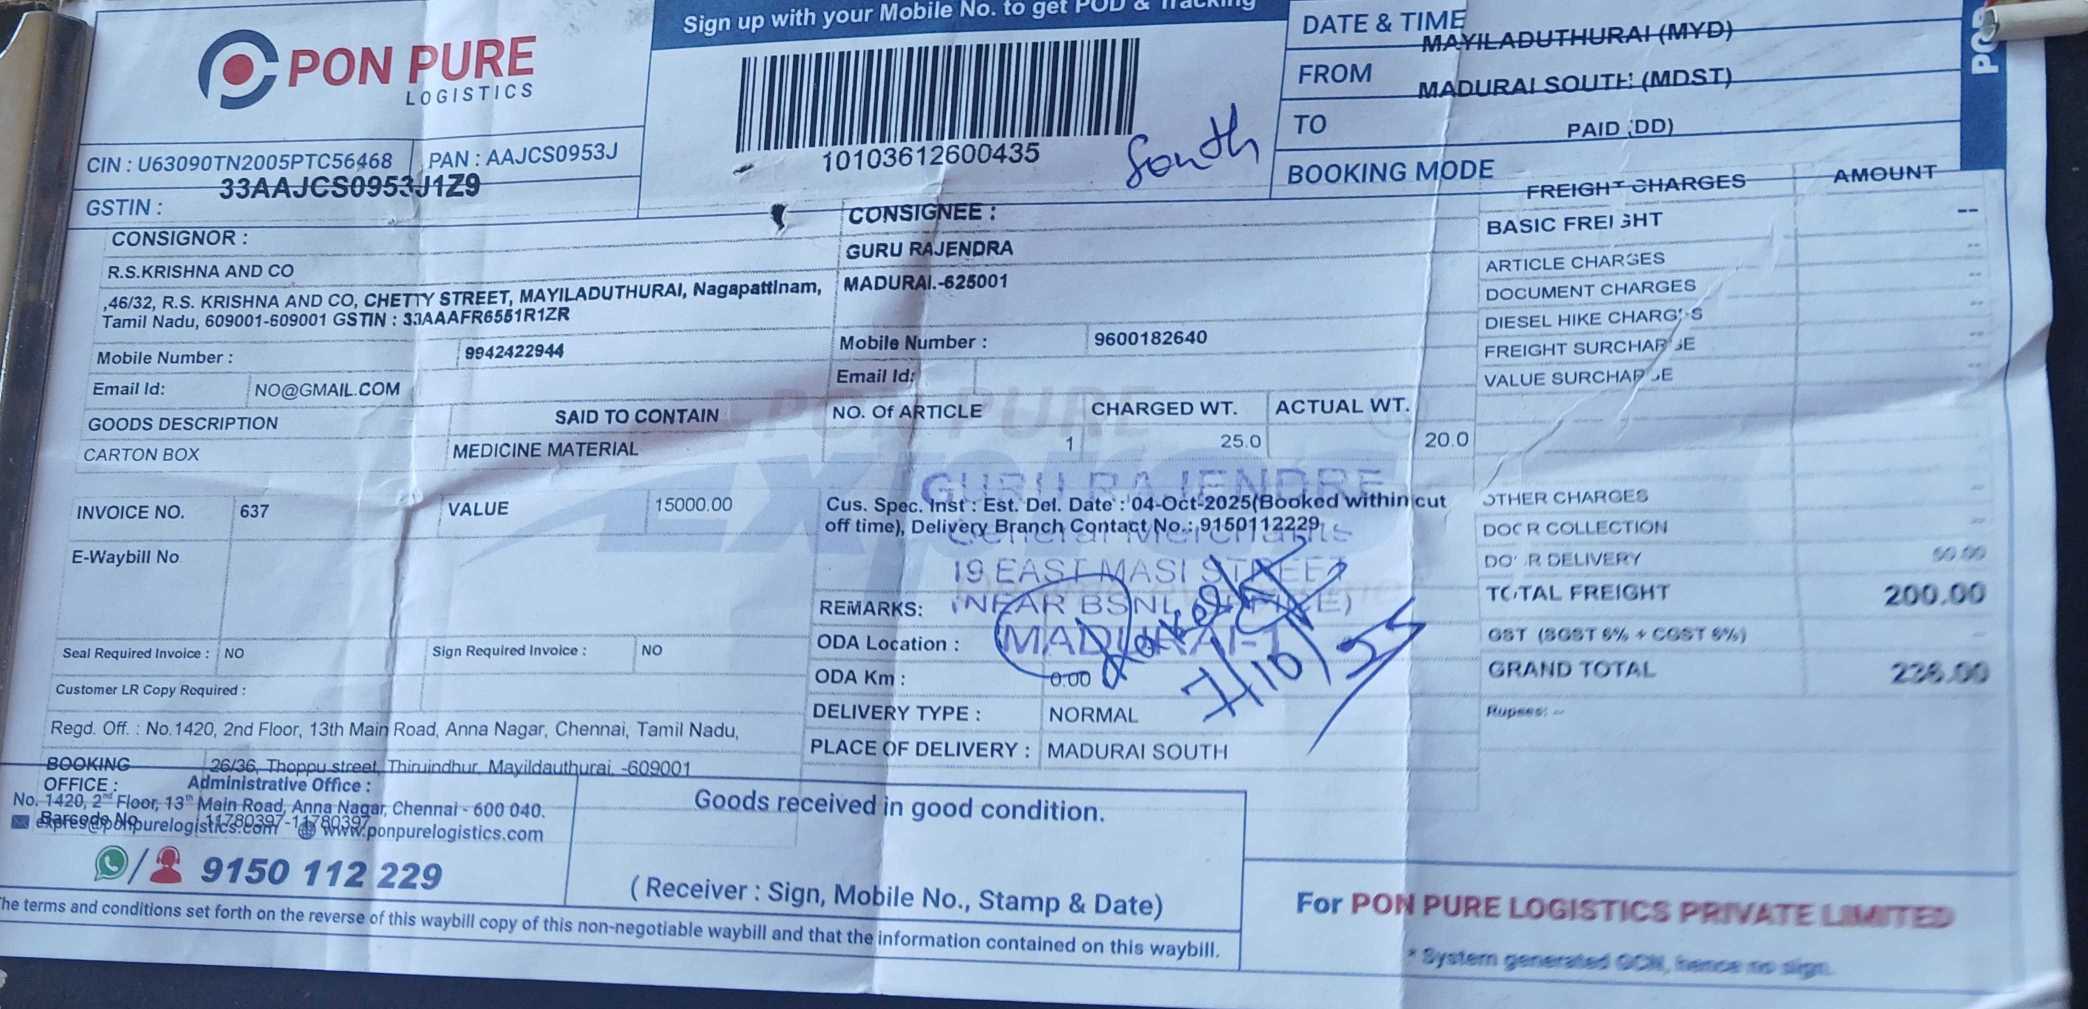 PON PURE
LOGISTICS
Sign up with your Mobile No. to get POD & Tracking
10103612600435
South
DATE & TIME
MAYILADUTHURAI (MYD)
FROM
MADURAI SOUTH (MDST)
TO
PAID (DD)
BOOKING MODE
POD
CIN : U63090TN2005PTC56468
PAN : AAJCS0953J
GSTIN :
33AAJCS0953J1Z9
CONSIGNOR :
R.S.KRISHNA AND CO
,46/32, R.S. KRISHNA AND CO, CHETTY STREET, MAYILADUTHURAI, Nagapattinam,
Tamil Nadu, 609001-609001 GSTIN : 33AAAFR6551R1ZR
Mobile Number :
9942422944
Email Id:
NO@GMAIL.COM
CONSIGNEE :
GURU RAJENDRA
MADURAI.-625001
Mobile Number :
9600182640
Email Id:
GOODS DESCRIPTION
SAID TO CONTAIN
NO. Of ARTICLE
CHARGED WT.
ACTUAL WT.
CARTON BOX
MEDICINE MATERIAL
1
25.0
20.0
INVOICE NO.
637
VALUE
15000.00
E-Waybill No
Seal Required Invoice :
NO
Sign Required Invoice :
NO
Customer LR Copy Required :
Regd. Off. : No.1420, 2nd Floor, 13th Main Road, Anna Nagar, Chennai, Tamil Nadu,
BOOKING
OFFICE :
26/36, Thoppu street, Thiruindhur, Mayildauthurai, -609001
Barcode No
11780397-11780397
PON PURE
Express
Cus. Spec. Inst : Est. Del. Date : 04-Oct-2025(Booked within cut
off time), Delivery Branch Contact No.: 9150112229
GURU RAJENDRE
General Merchants
19 EAST MASI STREET
(NEAR BSNL OFFICE)
MADURAI-1
7/10/25
REMARKS:
ODA Location :
ODA Km :
0.00
DELIVERY TYPE :
NORMAL
PLACE OF DELIVERY :
MADURAI SOUTH
FREIGHT CHARGES
AMOUNT
BASIC FREIGHT
--
ARTICLE CHARGES
--
DOCUMENT CHARGES
--
DIESEL HIKE CHARGES
--
FREIGHT SURCHARGE
--
VALUE SURCHARGE
--
OTHER CHARGES
--
DOOR COLLECTION
--
DOOR DELIVERY
60.00
TOTAL FREIGHT
200.00
GST (SGST 6% + CGST 6%)
--
GRAND TOTAL
236.00
Rupees: --
Administrative Office :
No. 1420, 2nd Floor, 13th Main Road, Anna Nagar, Chennai - 600 040.
expres@ponpurelogistics.com
www.ponpurelogistics.com
9150 112 229
The terms and conditions set forth on the reverse of this waybill copy of this non-negotiable waybill and that the information contained on this waybill.
Goods received in good condition.
( Receiver : Sign, Mobile No., Stamp & Date)
For PON PURE LOGISTICS PRIVATE LIMITED
* System generated GCN, hence no sign.